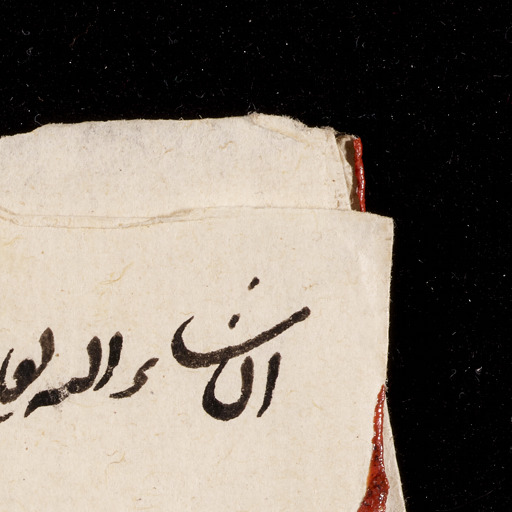 ان شاء الله تعا